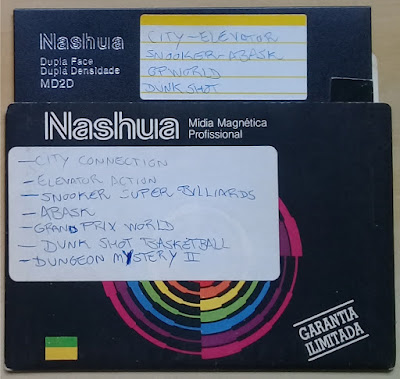 Nashua
Dupla Face
Dupla Densidade
MD2D
CITY-ELEVATOR
SNOOKER-ABASK
GPWORLD
DUNK SHOT
Nashua Mídia Magnética
Profissional
- CITY CONNECTION
- ELEVATOR ACTION
- SNOOKER SUPER BILLIARDS
- ABASK
- GRAND PRIX WORLD
- DUNK SHOT BASKETBALL
- DUNGEON MYSTERY II
GARANTIA
ILIMITADA